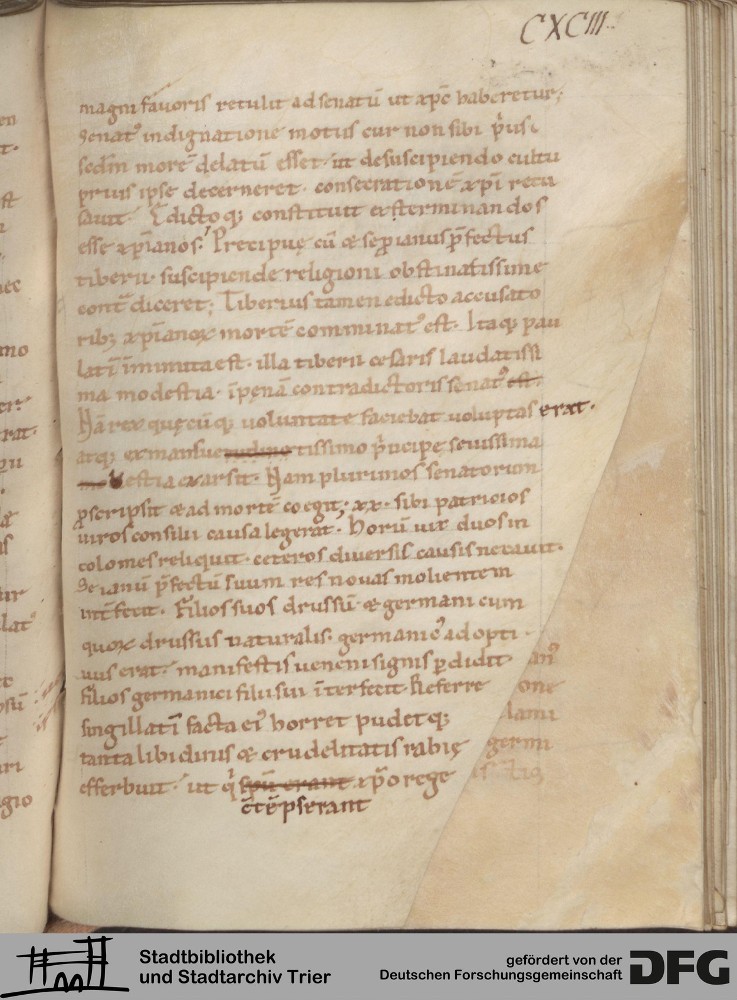 CXCIII
magni favoris retulit ad senatū ut xp̄c haberetur;
Senatꝰ indignatione motus cur non sibi p̄us
scd̄m morē delatū esset ut desuscipiendo cultu
prius ipse decerneret. consecrationē xp̄i recu
savit. Edictoq; constituit exterminandos
esse xp̄ianos. Precipuę cū & seianus p̄fectus
tiberii suscipiende religioni obstinatissime
contᷓdiceret; Tiberius tamen edicto accusato
ribꝫ xp̄ianoꝝ mortē comminatꝰ est. Itaq; pau
latī īmmuta est. illa tiberii cesaris laudatissi
ma modestia. ī pęnā contradictoris senatꝰ est.
Nā rex quęcūq; voluntate faciebat voluptas erat.
atq; ex mansue tissimo p̄ncipe sevissima
bestia exarsit. Nam plurimos senatorum
proscripsit & ad mortē coegit; xx. sibi patricios
viros consilii causa legerat. horū vix duos in
colomes reliquit. ceteros diversis causis necavit.
Seianū p̄fectū suum res novas molientem
int̄fecit. Filios suos drussū & germanicum
quoꝝ drussus naturalis. germanicꝰ adopti
vus erat. manifestis veneni signis ꝑdidit.
filios germanici filii sui īterfecit. Referre
singillatī facta eiꝰ horret pudetq;
tanta libidinis & crudelitatis rabię
efferbuit. ut qͥ spū erant xp̄o rege
cōtēpserant
Stadtbibliothek
und Stadtarchiv Trier
gefördert von der
Deutschen Forschungsgemeinschaft
DFG